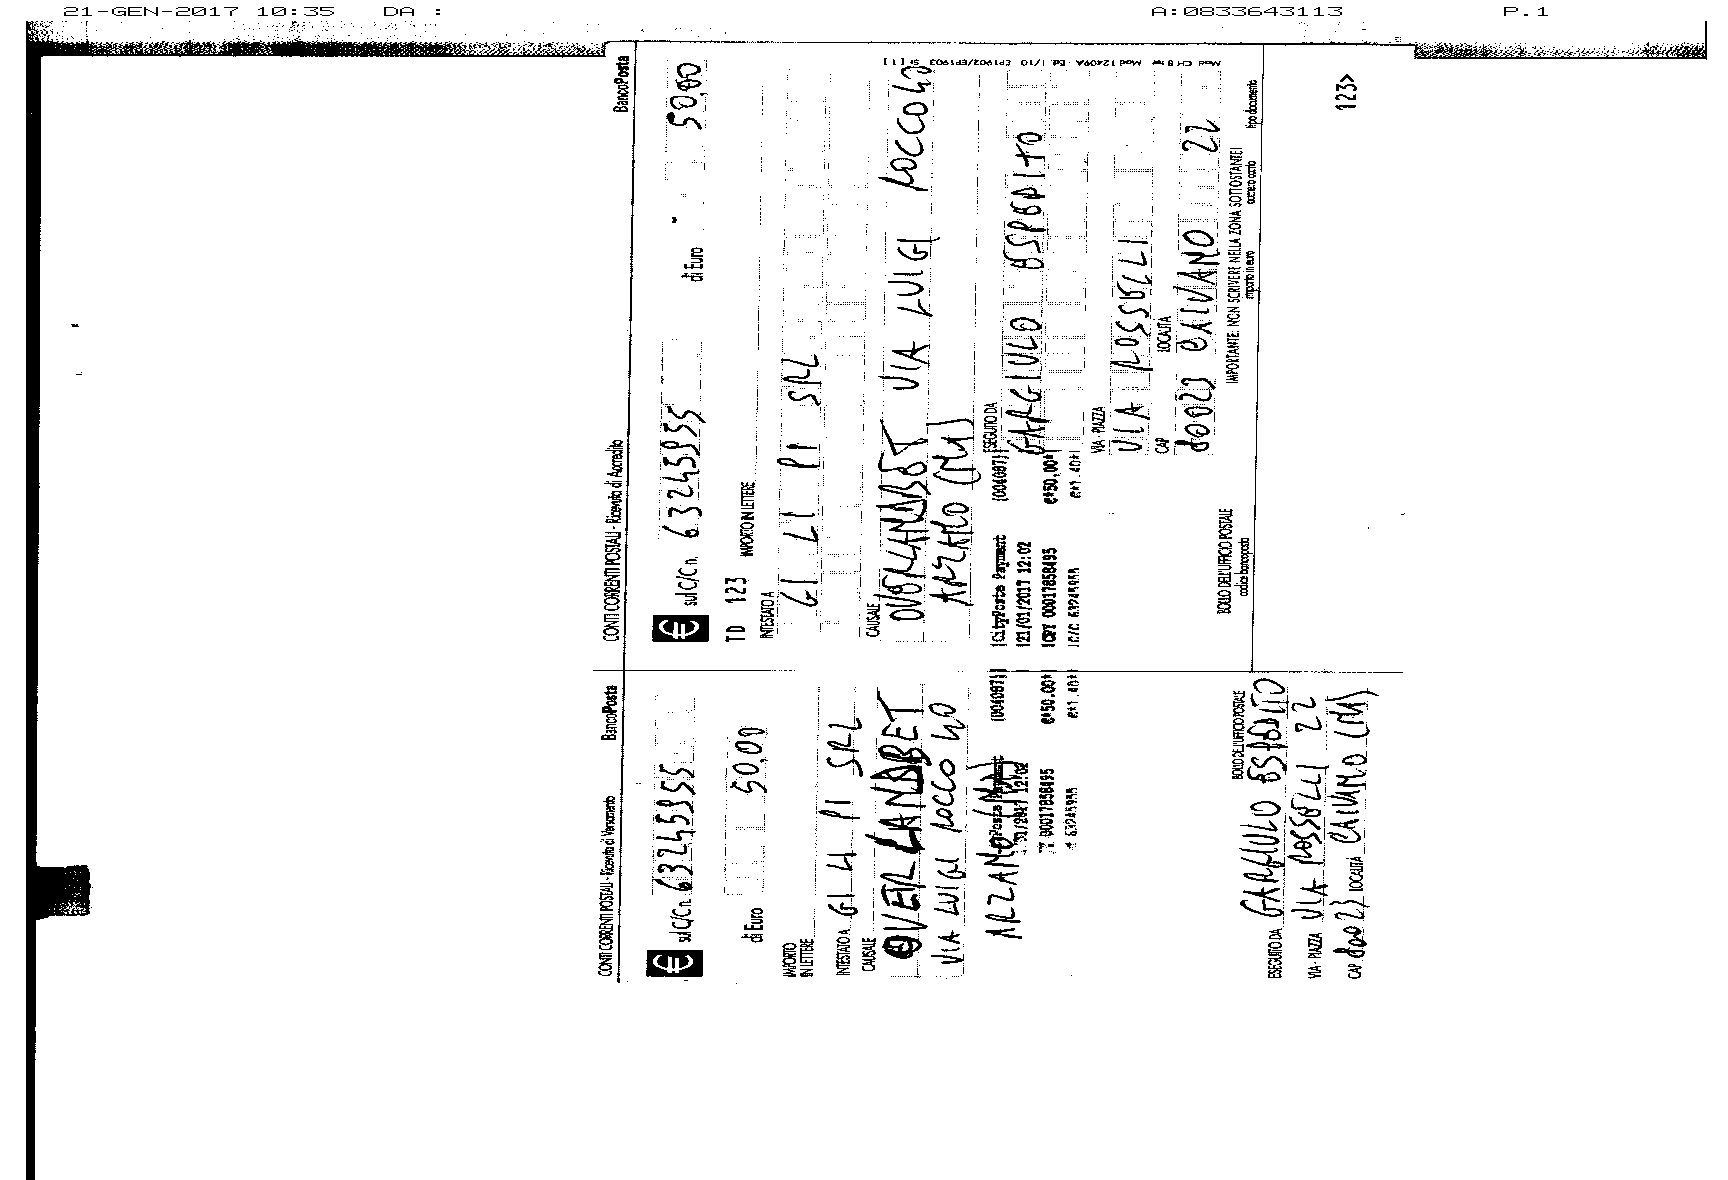 21-GEN-2017 10:35 DA : A:0833643113 P.1
CONTI CORRENTI POSTALI - Ricevuta di Versamento BancoPosta
€ sul C/C n. 63245955
di Euro 50,00
IMPORTO IN LETTERE
INTESTATO A GI LI PI SRL
CAUSALE
OVERLANDBET
VIA LUIGI ROCCO 40
ARZANO (NA)
(004087)
12:02
€*50,00*
00017858495
€*1,40*
63245955
BOLLO DELL'UFFICIO POSTALE
ESEGUITO DA GARGIULO ESPOSITO
VIA - PIAZZA VIA ROSSELLI 22
CAP 80023 LOCALITÀ CAIVANO (NA)
CONTI CORRENTI POSTALI - Ricevuta di Accredito BancoPosta
€ sul C/C n. 63245955 di Euro 50,00
TD 123 IMPORTO IN LETTERE
INTESTATO A
GI LI PI SRL
CAUSALE
OVERLANDBET VIA LUIGI ROCCO 40
ARZANO (NA)
CityPoste Payment (004087)
21/01/2017 12:02
00017858495 €*50,00*
C/C 63245955 €*1,40*
ESEGUITO DA
GARGIULO ESPOSITO
VIA - PIAZZA
VIA ROSSELLI
CAP LOCALITÀ
80023 CAIVANO 22
BOLLO DELL'UFFICIO POSTALE
codice bancoposta
IMPORTANTE: NON SCRIVERE NELLA ZONA SOTTOSTANTE!
importo in euro numero conto tipo documento
123>